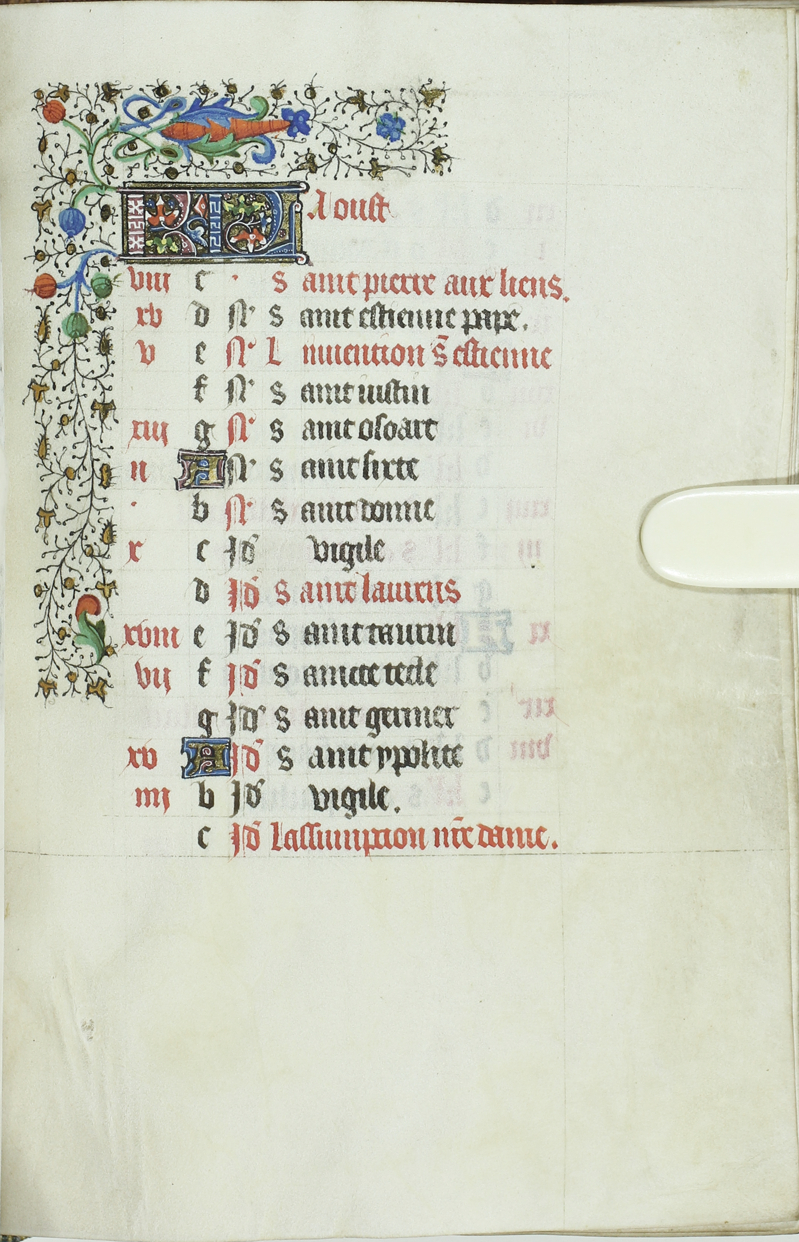 KL Aoust
viii c · S aint pierre aux liens.
xv d N· S aint estienne pape.
v e N· L nuention s̄ estienne
f N· S aint iustin
xiij g N· S aint osoart
ii A N· S aint sixte
· b N· S aint donne
x c Id vigile
d Id S aint laurens
xviii e Id S aint taurin
vij f Id S aincte tecle
g Id S aint germer
xv A Id S aint ypolite
iiij b Id vigile.
c Id Lassumption nr̄e dame.